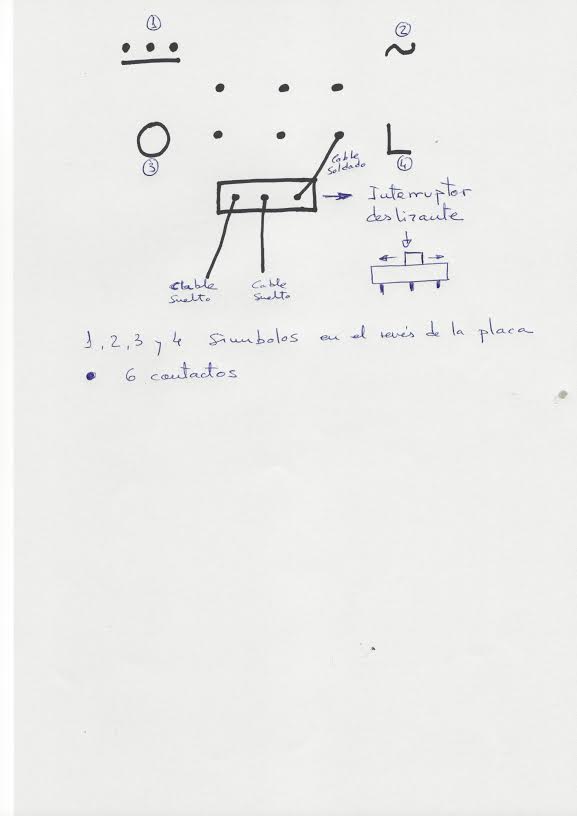 1
2
~
3
L
4
Cable
Soldado
Interruptor
deslizante
Cable
Suelto
Cable
Suelto
1, 2, 3 y 4 Simbolos en el revés de la placa
• 6 contactos